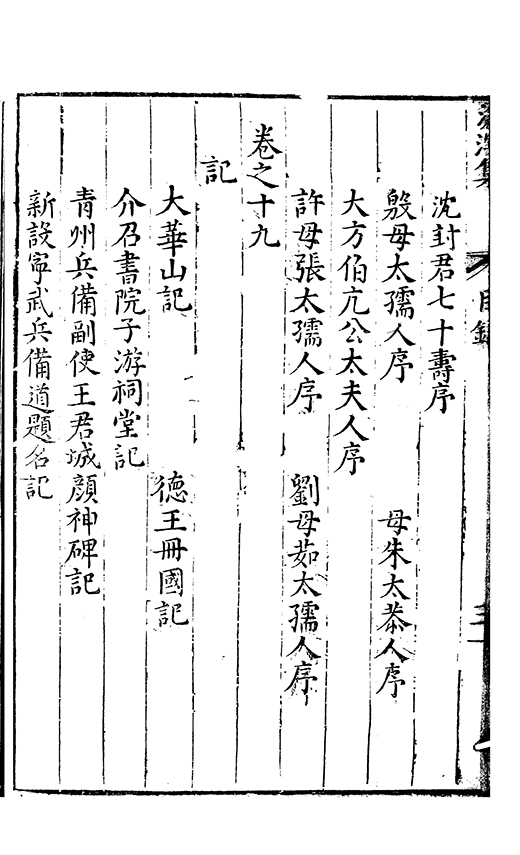 沈封君七十壽序
殷母太孺人序　母朱太恭人序
大方伯亢公太夫人序
許母張太孺人序　劉母茹太孺人序
卷之十九
記
大華山記　德王冊國記
介召書院子游祠堂記
青州兵備副使王君城顔神碑記
新設寧武兵備道題名記